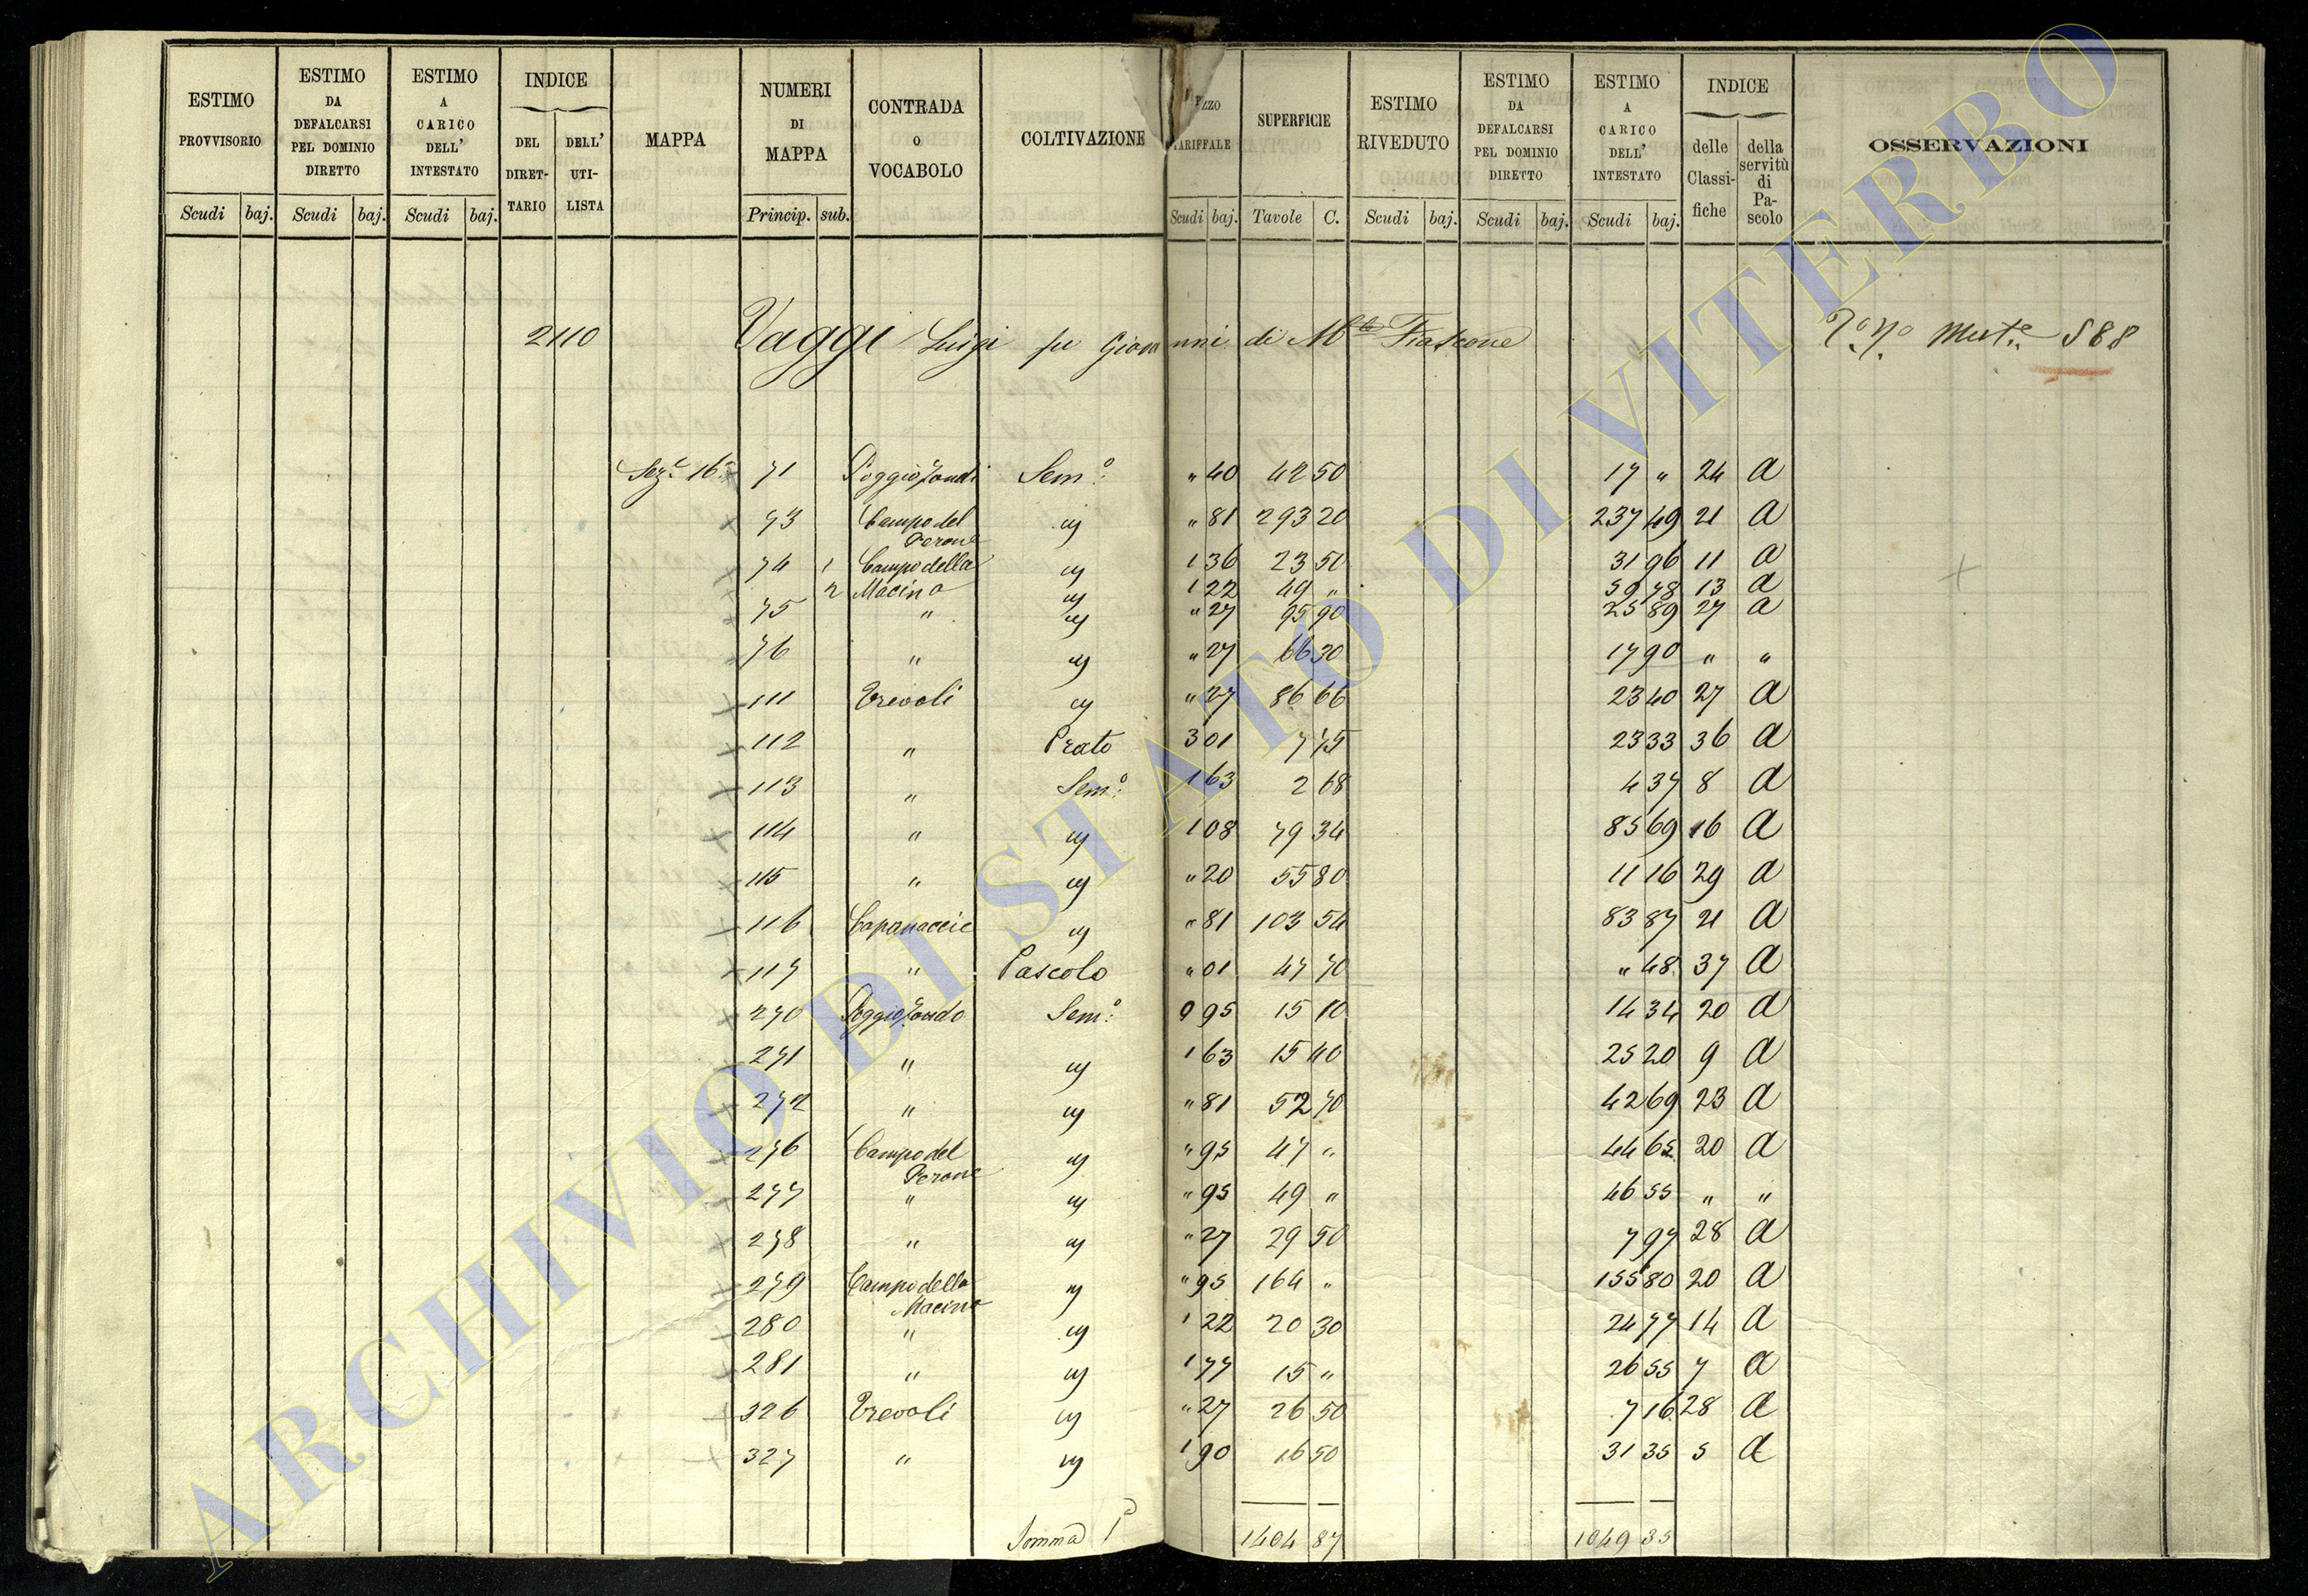 ESTIMO PROVVISORIO | ESTIMO DA DEFALCARSI PEL DOMINIO DIRETTO | ESTIMO A CARICO DELL' INTESTATO | INDICE DEL DIRET-TARIO | DELL' UTI-LISTA | MAPPA | NUMERI DI MAPPA | CONTRADA O VOCABOLO | COLTIVAZIONE | TARIFFALE | SUPERFICIE | ESTIMO RIVEDUTO | ESTIMO DA DEFALCARSI PEL DOMINIO DIRETTO | ESTIMO A CARICO DELL' INTESTATO | INDICE delle Classi-fiche | della servitù di Pa-scolo | OSSERVAZIONI
Scudi baj. Scudi baj. Scudi baj. Princip. sub. Scudi baj. Tavole C. Scudi baj. Scudi baj. Scudi baj.
2110 Vaggi Luigi fu Giovanni di M.te Fiascone 588
Sez.e 16a 71 Poggio Tondi Sem.o " 40 42 50 17 " 24 a
73 Campo del Perone " 81 293 20 237 49 21 a
74 1 Campo della 1 36 23 50 31 96 11 a
2 Macina 1 22 49 " 59 78 13 a
75 " " 27 95 90 25 89 27 a
76 " " 27 66 30 17 90 " "
111 Trevoli " 27 86 66 23 40 27 a
112 " Prato 3 01 7 75 23 33 36 a
113 " Sem.o 1 63 2 68 4 37 8 a
114 " 1 08 79 34 85 69 16 a
115 " " 20 55 80 11 16 29 a
116 Capanaccie " 81 103 54 83 87 21 a
117 " Pascolo " 01 47 70 " 48 37 a
270 Poggio Tondo Sem.o 0 95 15 10 14 34 20 a
271 " 1 63 15 40 25 20 9 a
272 " " 81 52 70 42 69 23 a
276 Campo del Perone " 95 47 " 44 65 20 a
277 " " 95 49 " 46 55 " "
278 " " 27 29 50 7 97 28 a
279 Campo della Macina " 95 164 " 155 80 20 a
280 " 1 22 20 30 24 77 14 a
281 " 1 77 15 " 26 55 7 a
326 Trevoli " 27 26 50 7 16 28 a
327 " 1 90 16 50 31 35 5 a
Somma 1404 87 1049 35
ARCHIVIO DI STATO DI VITERBO